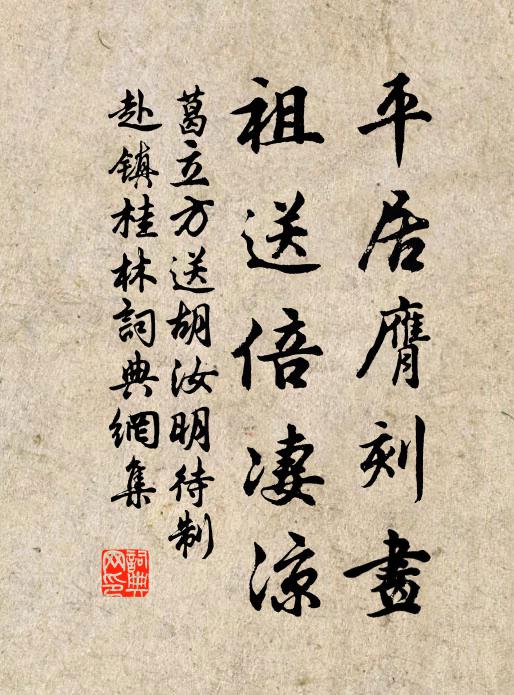 平居膺刻畫
祖送倍凄涼
葛立方送胡汝明待制
赴镇桂林詞典網集
詞典
网印